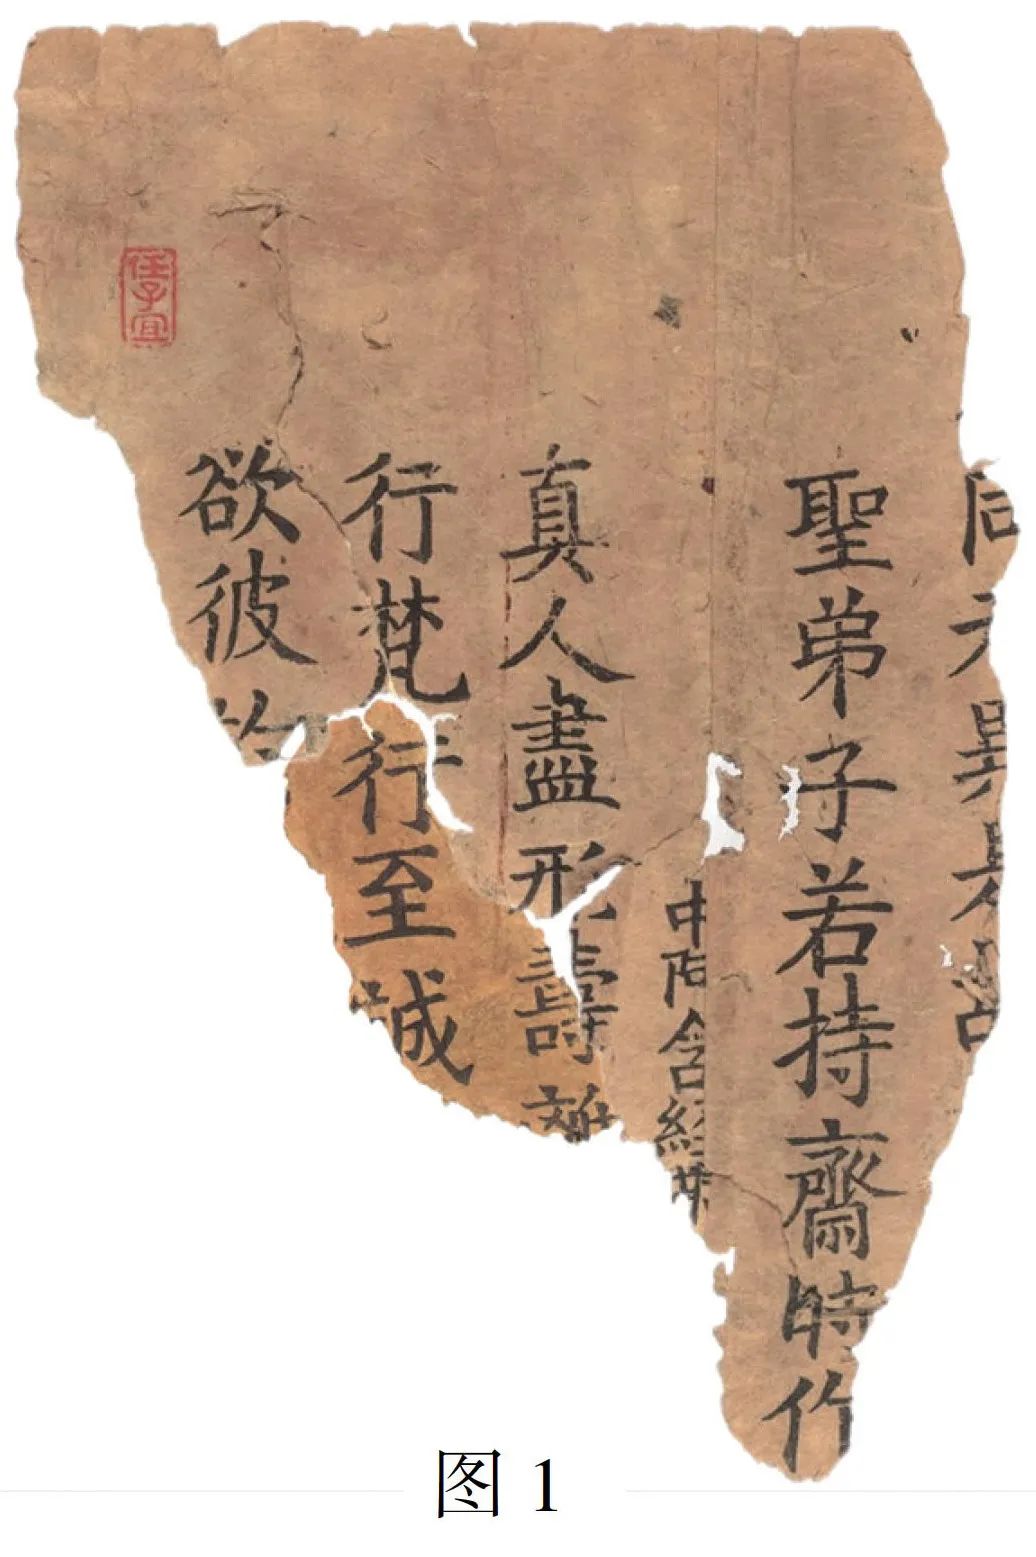 同无異是
聖弟子若持齋時作
中阿含經第
真人盡形壽離
行梵行至誠
欲彼於
任子宜
图 1